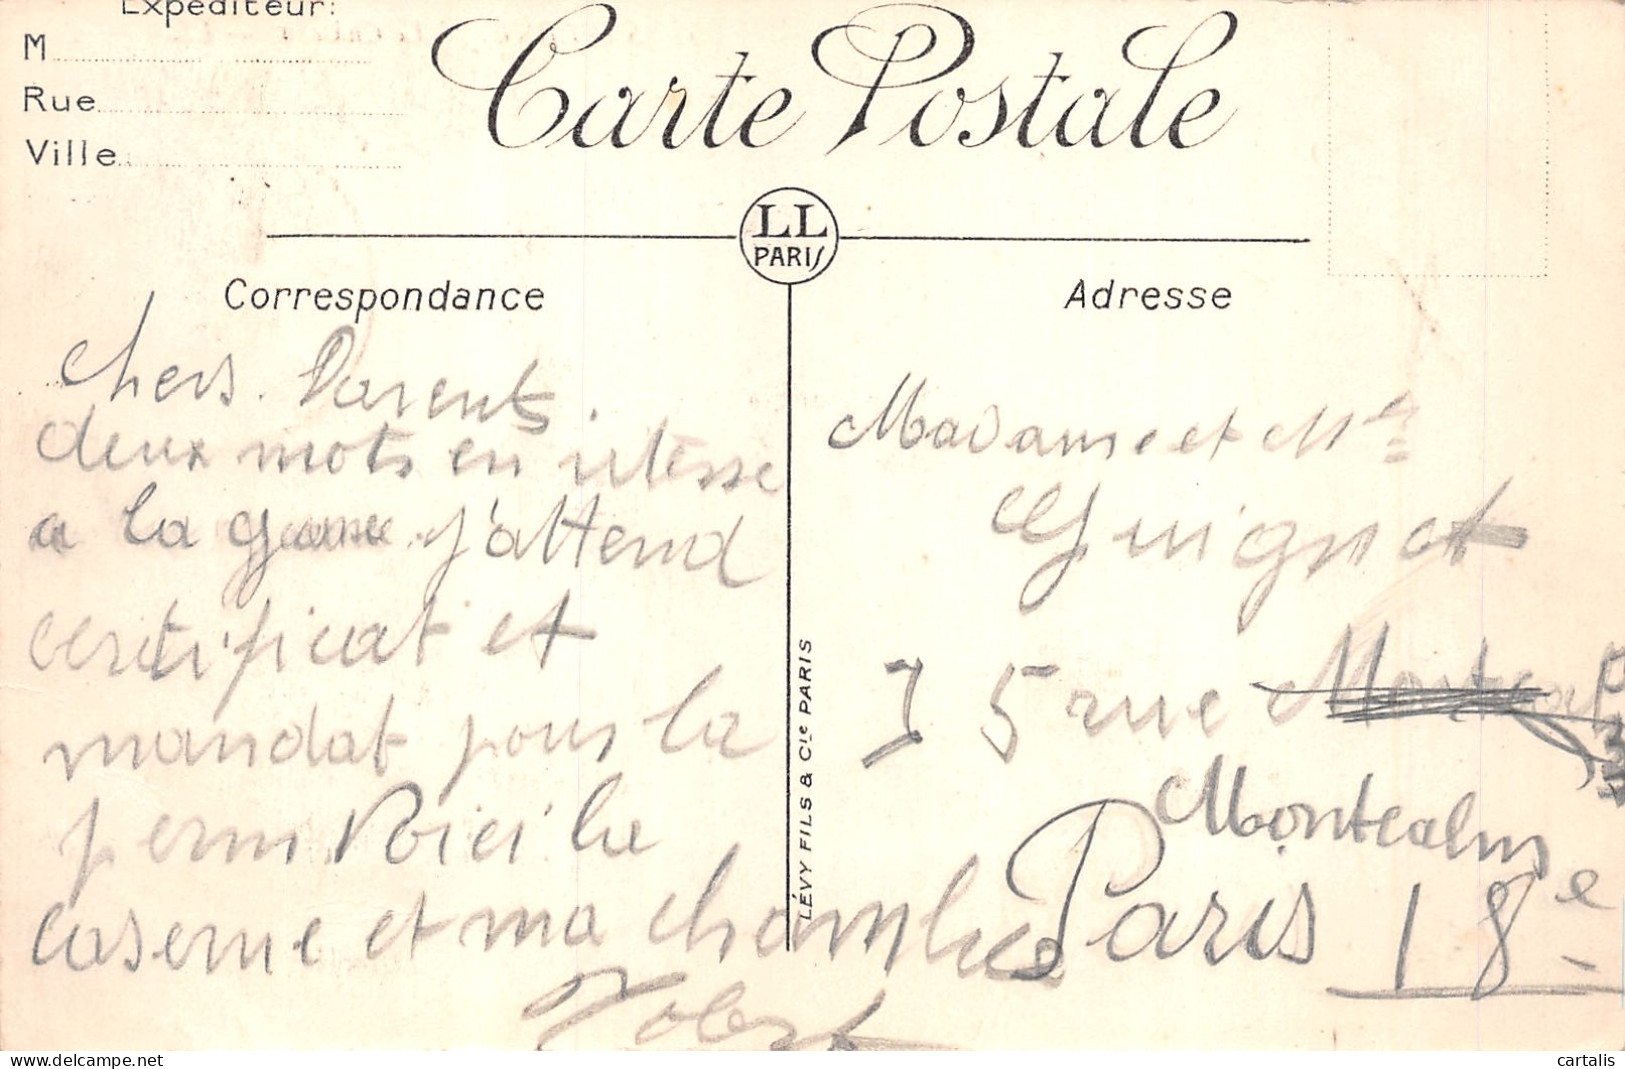 Expéditeur:
M
Rue
Ville
Carte Postale
LL
PARIS
Correspondance
Adresse
chers Parents.
deux mots en vitesse
a la j'attend
certificat et
mandat pour la
perm. Voici la
caserne et ma chambre
Robert
Madame et Mr
Guignet
75 rue
Montcalm
Paris 18e
LÉVY FILS & Cie PARIS
www.delcampe.net
cartalis